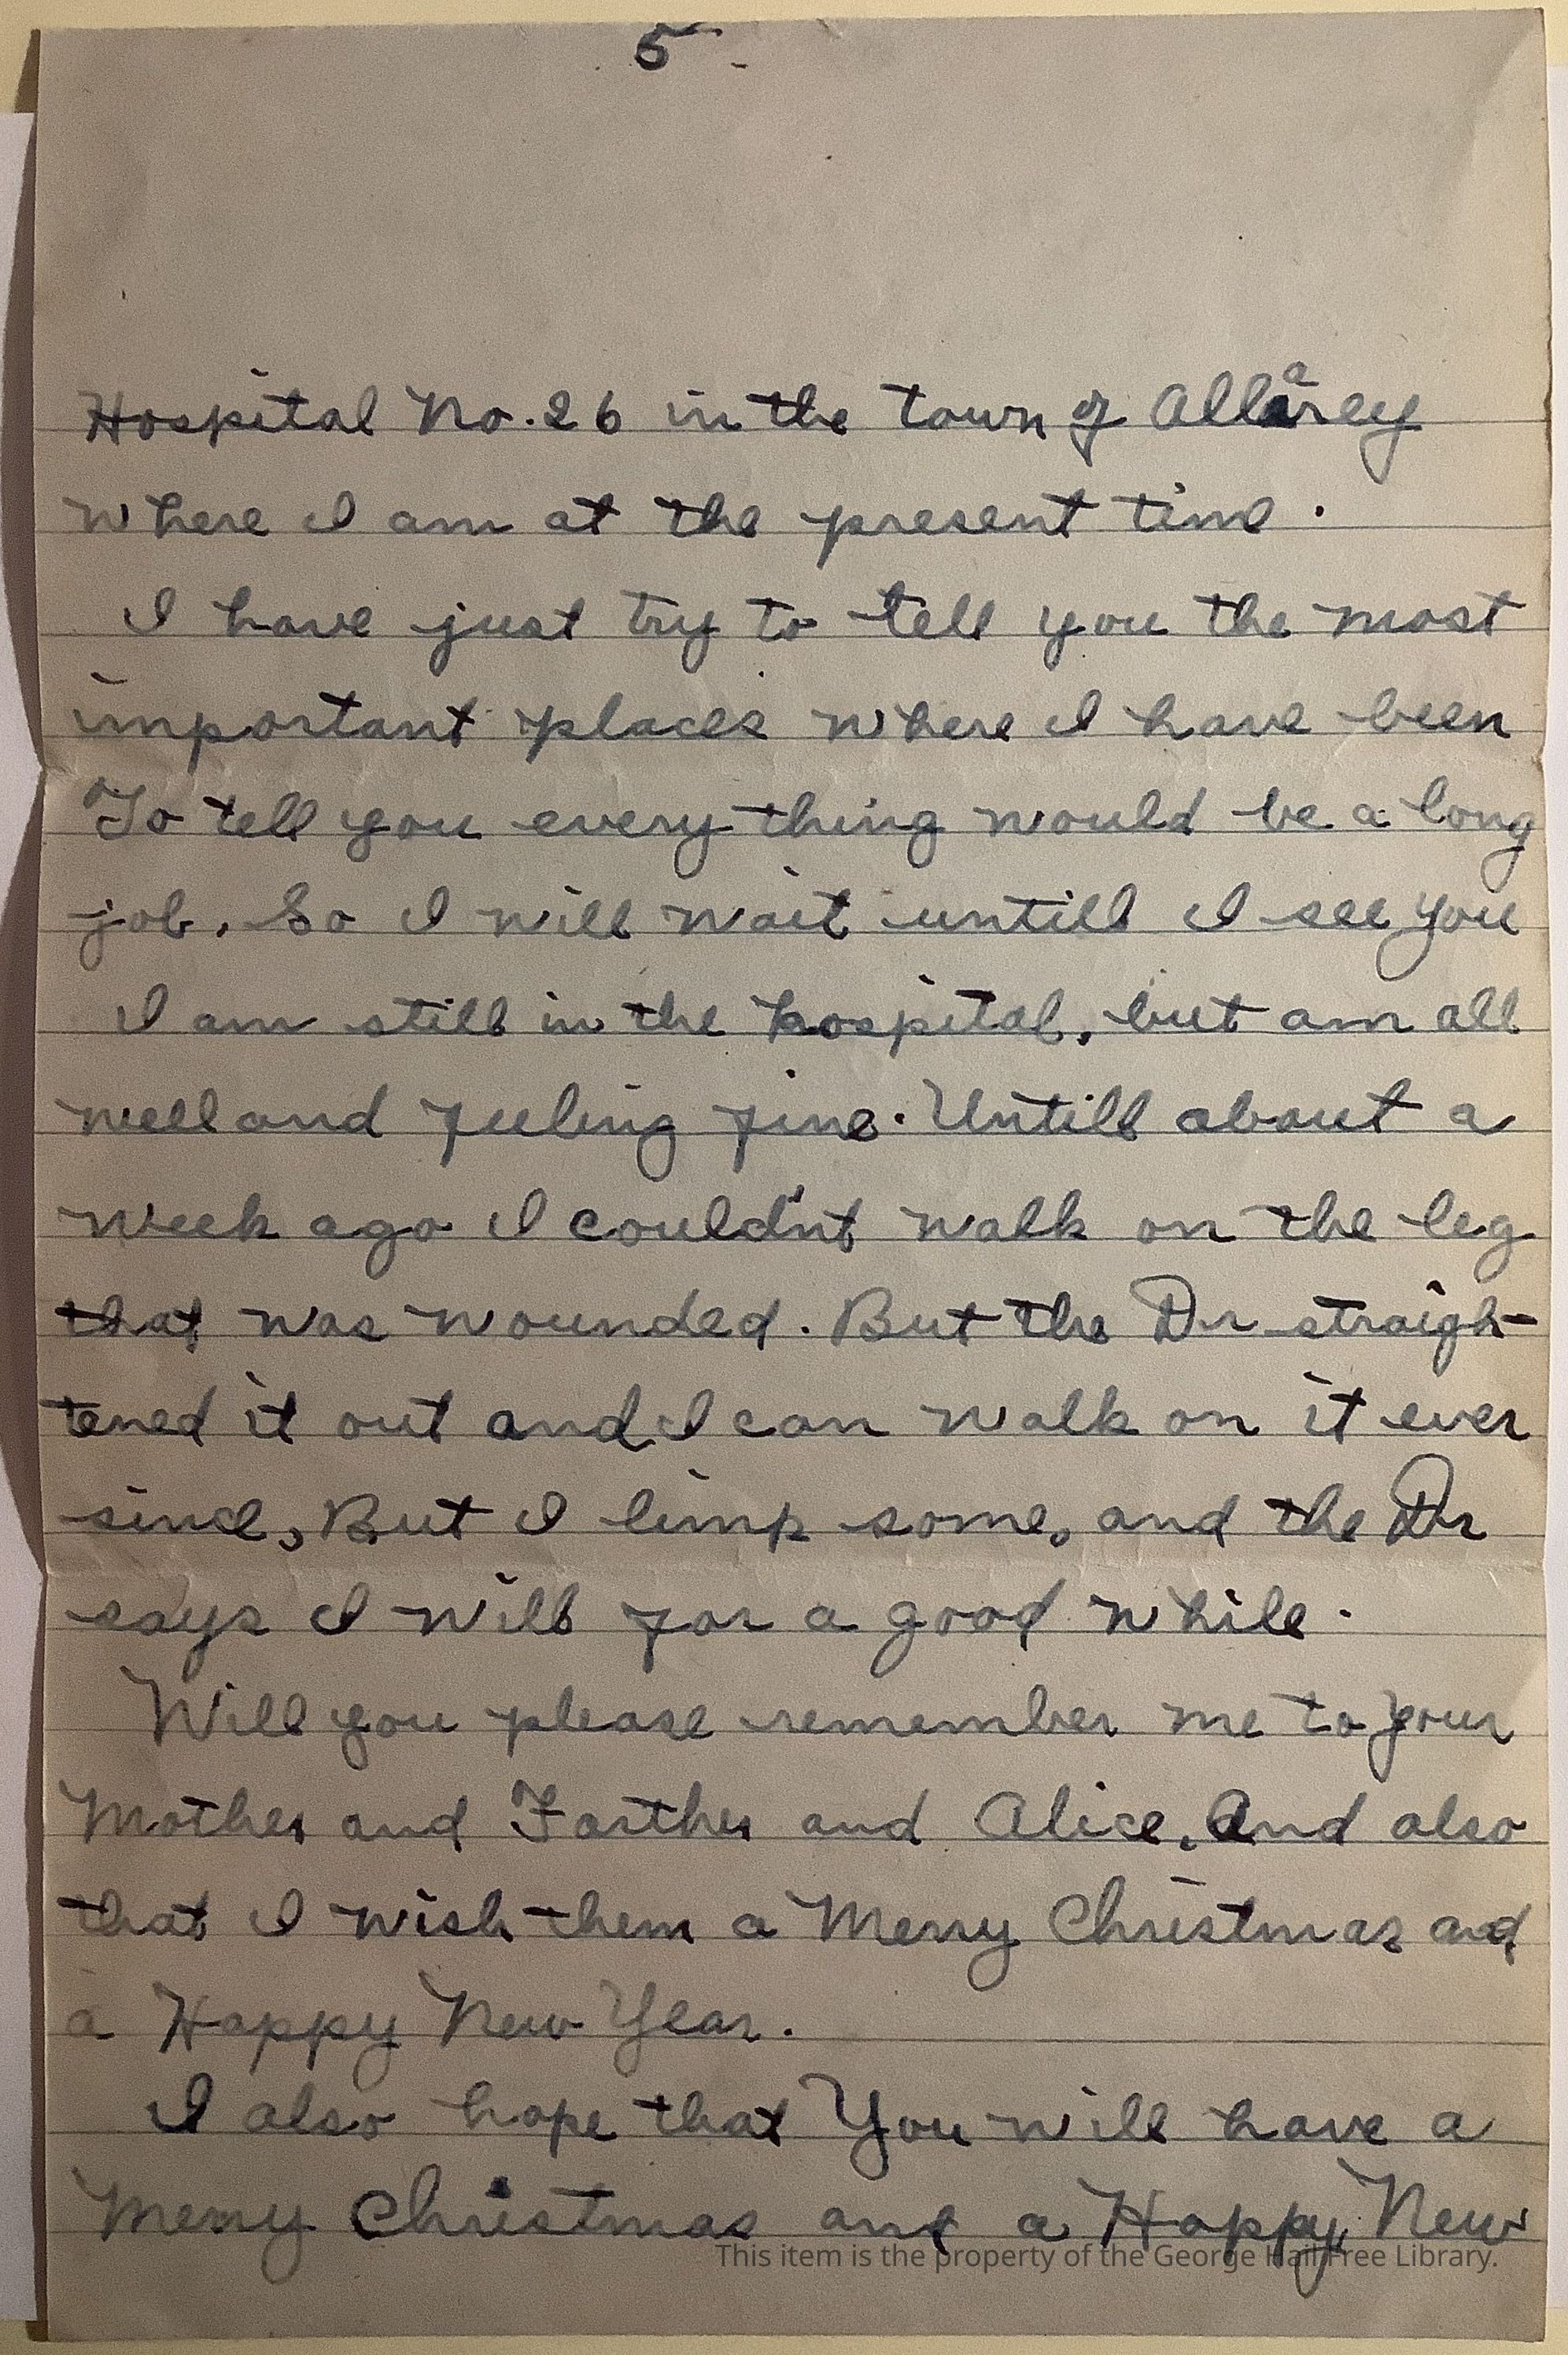 5
Hospital No. 26 in the town of Allarey
where I am at the present time.
I have just try to tell you the most
important places where I have been
To tell you every thing would be a long
job. So I will wait untill I see you
I am still in the hospital, but am all
well and feeling fine. Untill about a
week ago I couldn't walk on the leg
that was wounded. But the Dr straigh-
tened it out and I can walk on it ever
since, But I limp some, and the Dr
says I will for a good while.
Will you please remember me to your
Mother and Farther and Alice, And also
that I wish them a Merry Christmas and
a Happy New Year.
I also hope that You will have a
Merry Christmas and a Happy New
This item is the property of the George Hail Free Library.